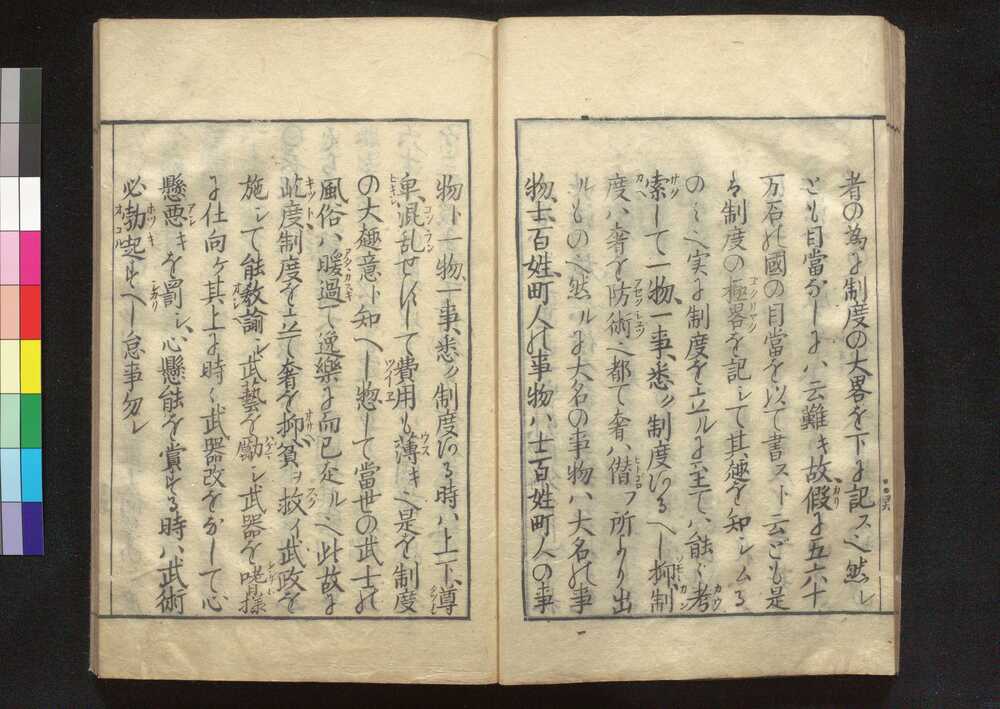 者の為に制度の大畧を下に記ス也然レ
ども目當なしにハ云難キ故假に五六十
万石の國の目當を以て書スト云ども是
は制度の極畧を記して其趣を知シムる
のミ也実に制度を立ルに至てハ能々考
索して一物一事悉ク制度ある べし抑制
度ハ奢を防術也都て奢ハ僭フ所より出
ルもの也然ルに大名の事物ハ大名の事
物士百姓町人の事物ハ士百姓町人の事
物ト一物一事悉ク制度ある時ハ上下尊
卑混乱せずして費用も薄キ也是を制度
の大趣意ト知べし惣して當世の武士の
風俗ハ暖過て逸樂に而已走ル也此故に
屹度制度を立て奢を抑貧ヲ救イ武政を
施して能教諭シ武藝を勵シ武器を嗜様
に仕向ケ其上に時々武器改をなして心
懸悪キを罰シ心懸能を賞する時ハ武術
必勃起すべし怠事勿レ